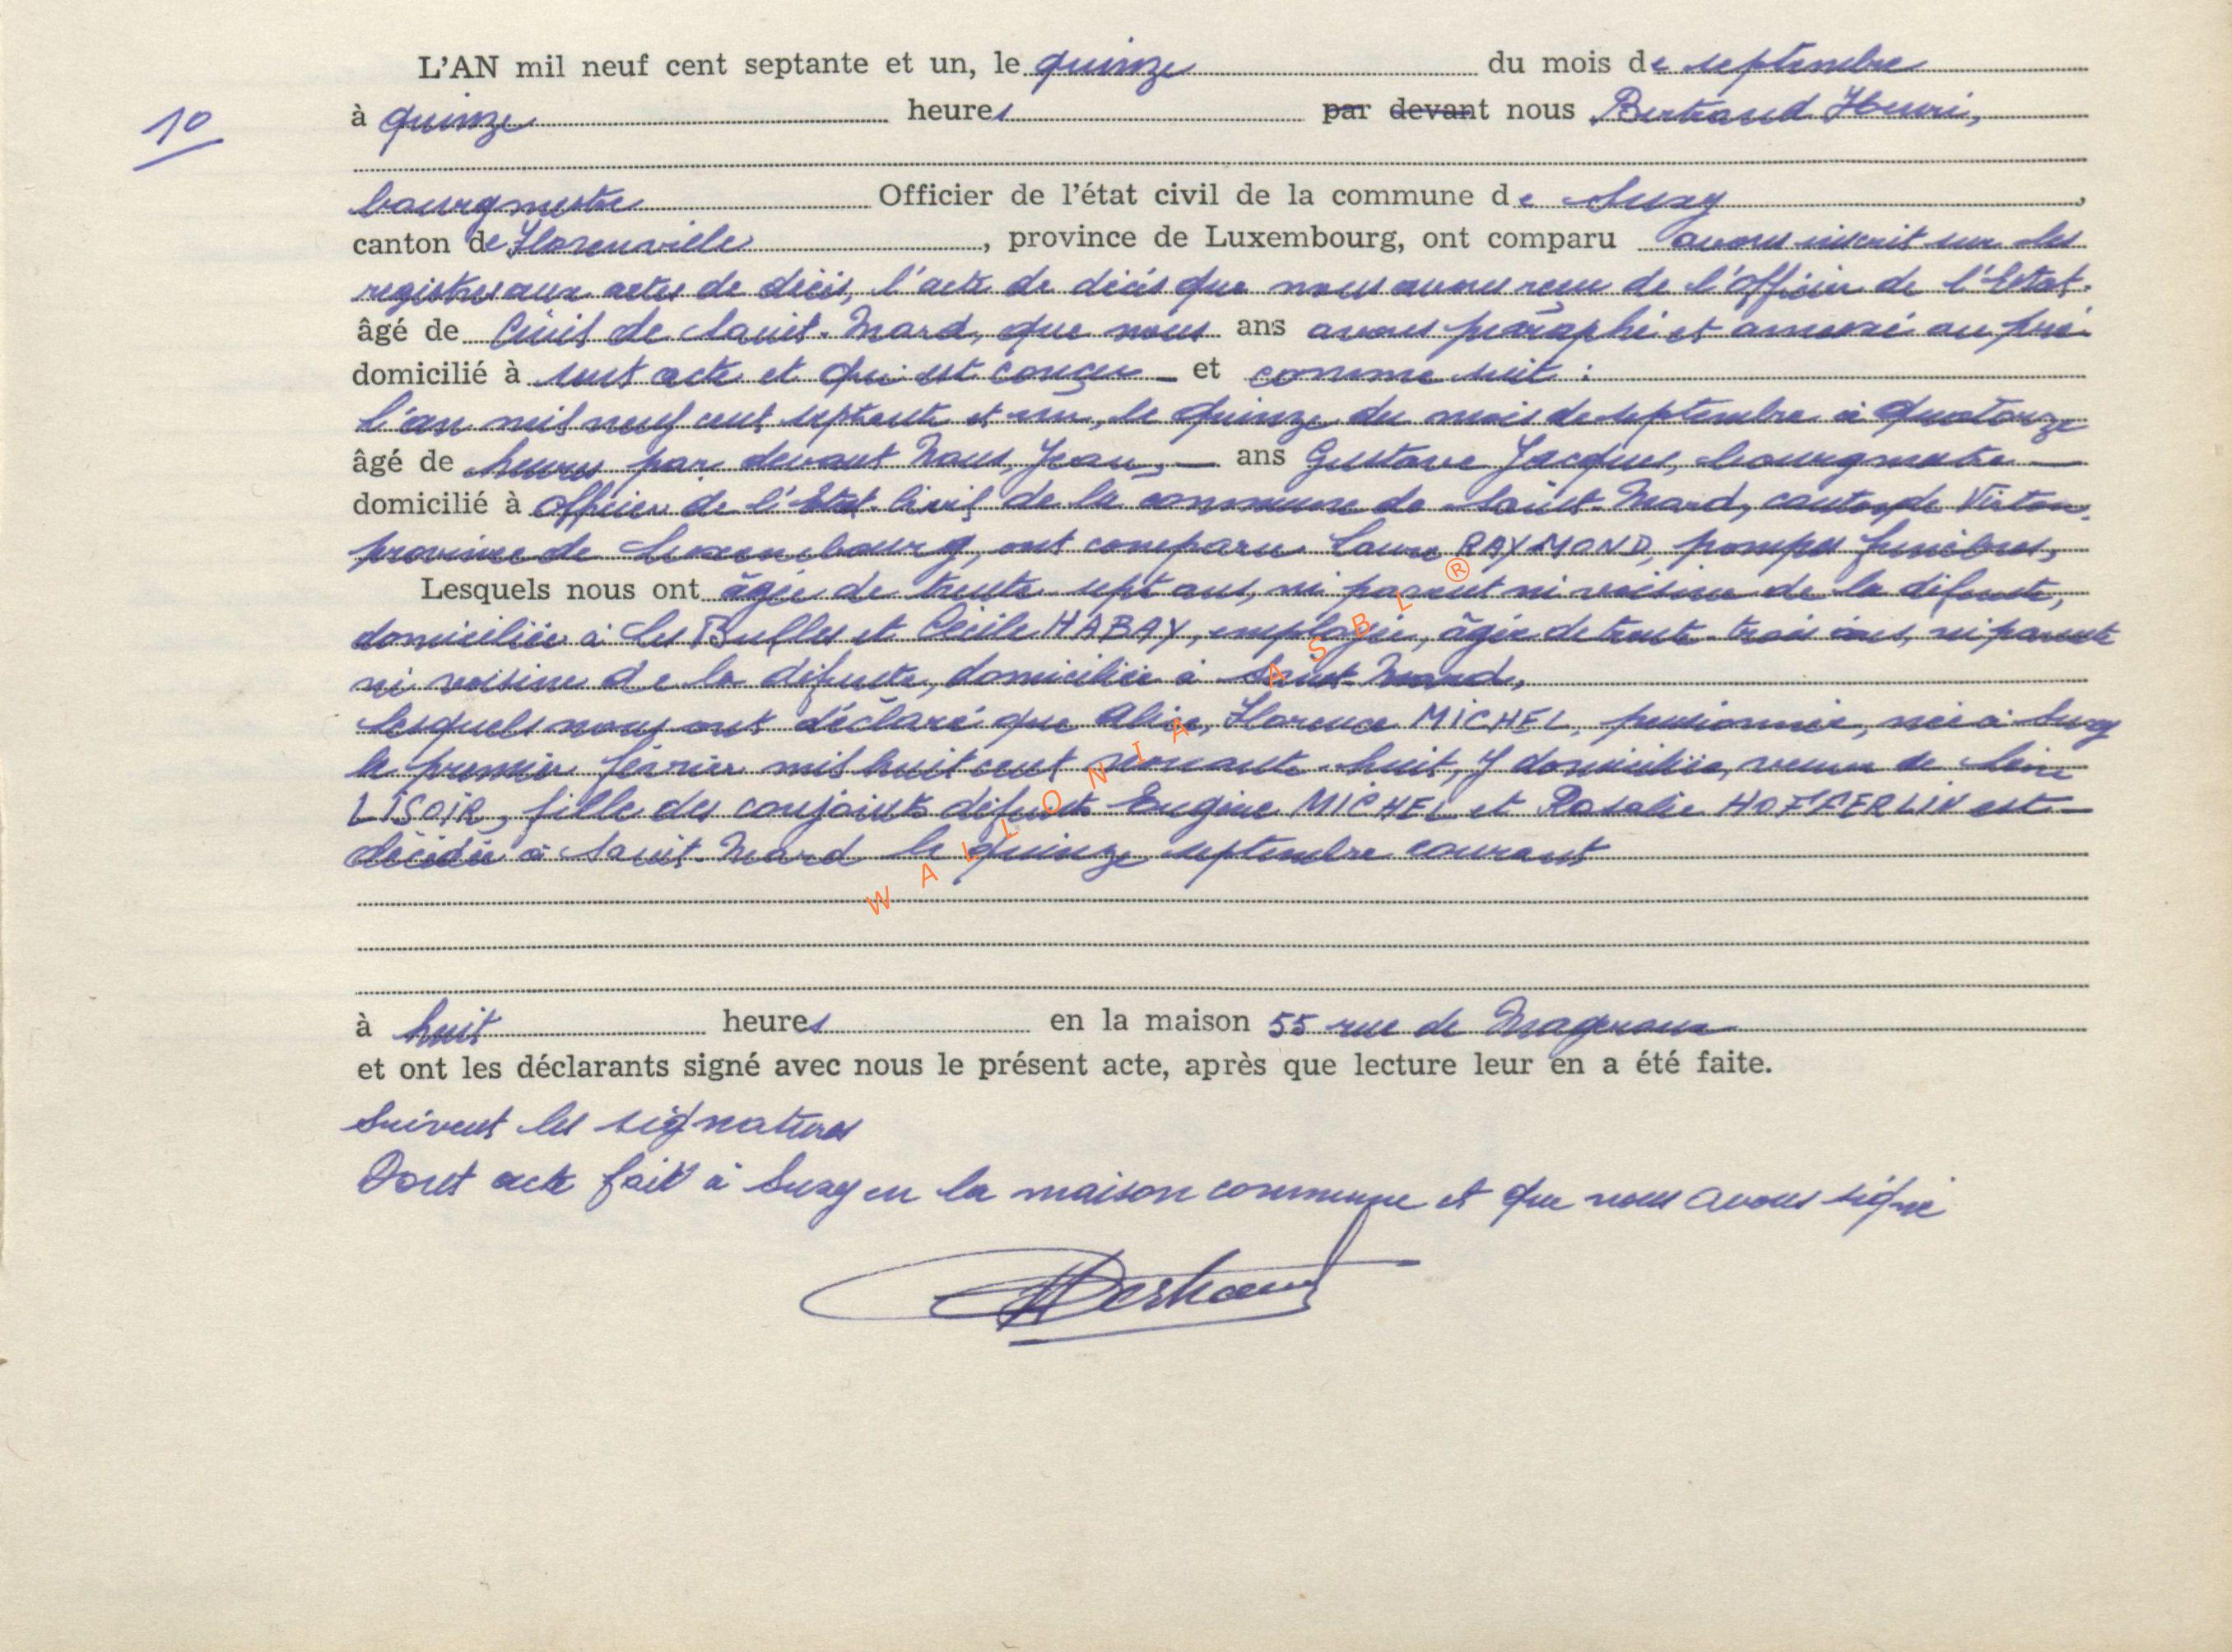 L'AN mil neuf cent septante et un, le quinze du mois de septembre
10
à quinze heures par devant nous Bertrand Henri,
bourgmestre Officier de l'état civil de la commune de Suxy,
canton de Florenville, province de Luxembourg, ont comparu avons inscrit sur les
registres aux actes de décès, l'acte de décès que nous avons reçu de l'Officier de l'Etat-
âgé de Civil de Saint-Mard, que nous ans avons paraphé et annexé au pré-
domicilié à sent acte et qui est conçu et comme suit :
l'an mil neuf cent septante et un, le quinze du mois de septembre à quatorze
âgé de heures par devant Nous, Jean, ans Gustave Jacques, bourgmestre
domicilié à Officier de l'Etat-Civil de la commune de Saint-Mard, canton de Virton,
province de Luxembourg, ont comparu Laure RAYMOND, pompes funèbres,
Lesquels nous ont âgée de trente-sept ans, ni parent ni voisine de la défunte,
domiciliée à Les Bulles et Cécile HABAY, employée, âgée de trente-trois ans, ni parente
ni voisine de la défunte, domiciliée à Saint-Mard,
lesquels nous ont déclaré que Alice, Florence MICHEL, pensionnée, née à Suxy
le premier février mil huit cent nonante-huit, y domiciliée, veuve de
LISOIR, fille des conjoints défunts Eugène MICHEL et Rosalie HOFFERLIN est
décédée à Saint-Mard le quinze septembre courant
à huit heures en la maison 55 rue de Mageroux
et ont les déclarants signé avec nous le présent acte, après que lecture leur en a été faite.
Suivent les signatures
Dont acte fait à Suxy en la maison commune et que nous avons signé
HBertrand
WALLONIA ASBL ®